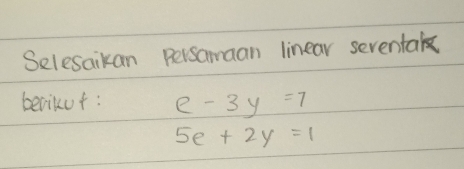 Selesaikan Persamaan linear serentak
berikut: e - 3y = 7
5e + 2y = 1